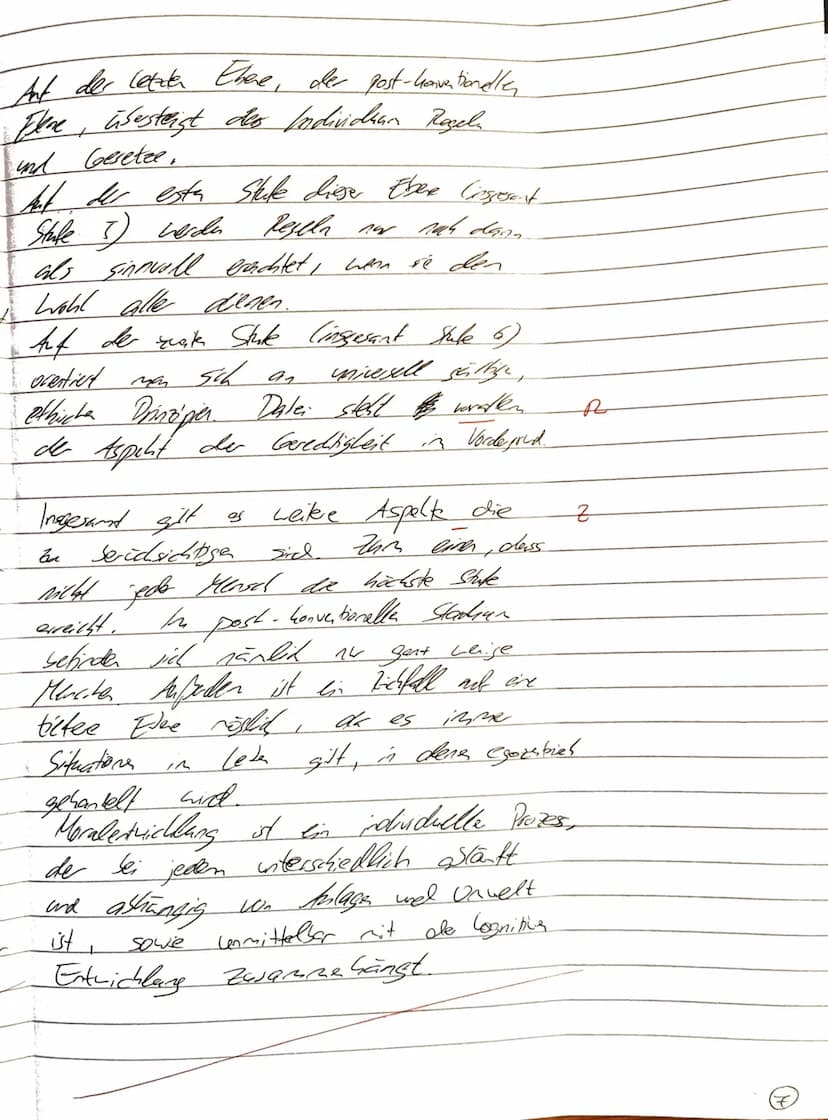 Auf der letzten Ebene, der post-konventionellen
Ebene, übersteigt das Individuum Regeln
und Gesetze.
Auf der ersten Stufe dieser Ebene (insgesamt
Stufe 5) werden Regeln nur noch dann
als sinnvoll erachtet, wenn sie dem
Wohl aller dienen.
Auf der zweiten Stufe (insgesamt Stufe 6)
orientiert man sich an universell gültigen,
ethischen Prinzipien. Dabei steht vorallem R
der Aspekt der Gerechtigkeit im Vordergrund.
Insgesamt gilt es weitere Aspekte die Z
zu berücksichtigen sind. Zum einen, dass
nicht jeder Mensch die höchste Stufe
erreicht. Im post-konventionellen Stadium
befinden sich nämlich nur ganz wenige
Menschen. Außerdem ist ein Rückfall auf eine
tiefere Ebene möglich, da es immer
Situationen im Leben gibt, in denen egozentrisch
gehandelt wird.
Moralentwicklung ist ein individueller Prozess,
der bei jedem unterschiedlich abläuft
und abhängig von Anlagen und Umwelt
ist, sowie unmittelbar mit der kognitiven
Entwicklung zusammenhängt.
7